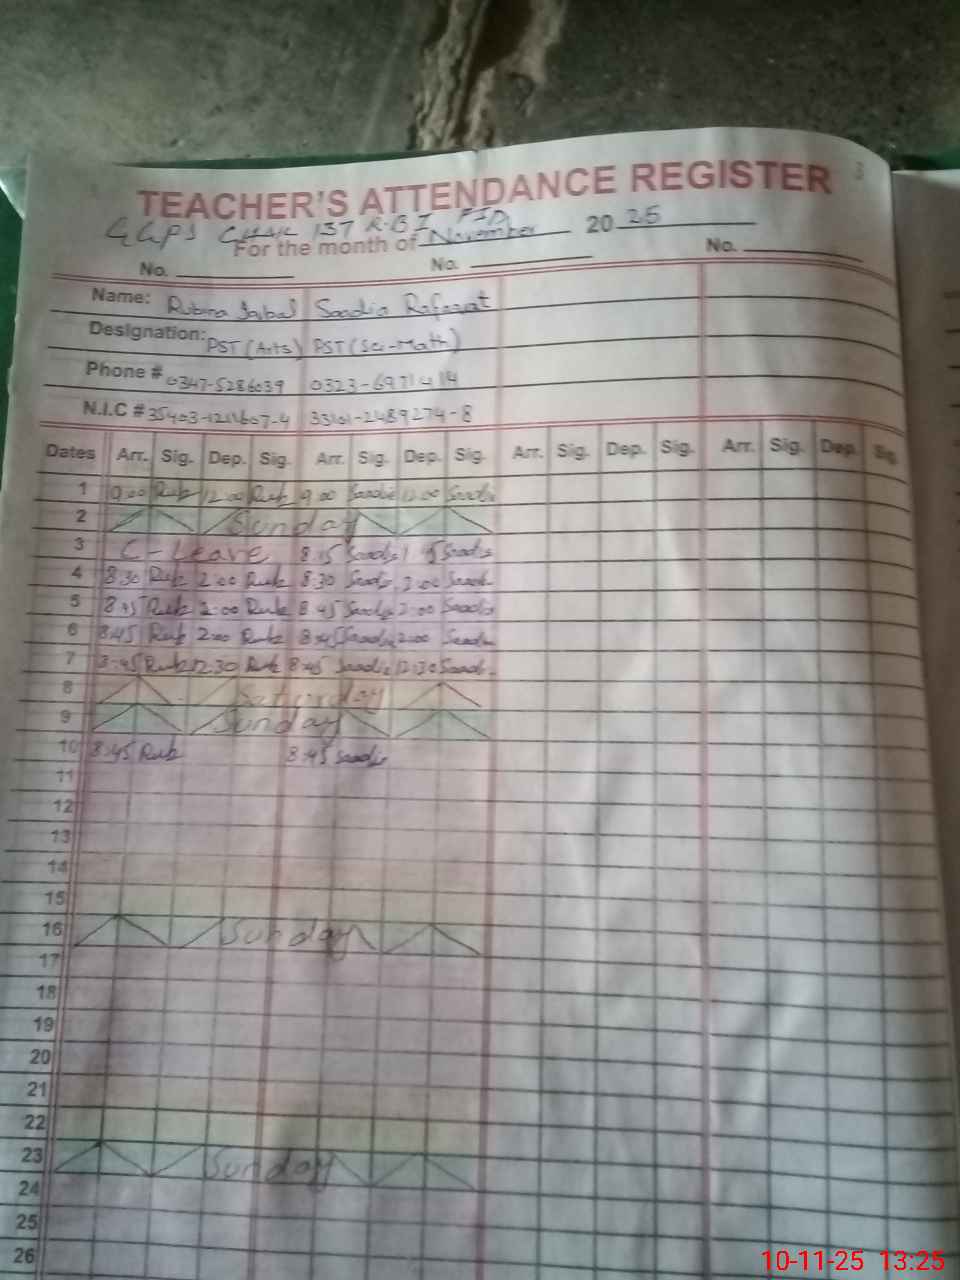 TEACHER'S ATTENDANCE REGISTER 3
GGPS CHAK 137 R.B I FSD
For the month of November 20 25
No. No. No.
Name: Rubina Iqbal Saadia Rafaqat
Designation: PST (Arts) PST (Sci-Math)
Phone # 0347-5286039 0323-6971414
N.I.C # 35403-1211607-4 33101-2489274-8
Dates Arr. Sig. Dep. Sig. Arr. Sig. Dep. Sig. Arr. Sig. Dep. Sig. Arr. Sig. Dep. Sig.
1 9:00 Rub 12:00 Rub 9:00 Saadia 12:00 Saadia
2 Sunday
3 C-Leave 8:45 Saadia 1:45 Saadia
4 8:30 Rub 2:00 Rub 8:30 Saadia 2:00 Saadia
5 8:45 Rub 2:00 Rub 8:45 Saadia 2:00 Saadia
6 8:45 Rub 2:00 Rub 8:45 Saadia 2:00 Saadia
7 8:45 Rub 12:30 Rub 8:45 Saadia 12:30 Saadia
8 Saturday
9 Sunday
10 8:45 Rub 8:45 Saadia
11
12
13
14
15
16 Sunday
17
18
19
20
21
22
23 Sunday
24
25
26
10-11-25 13:25